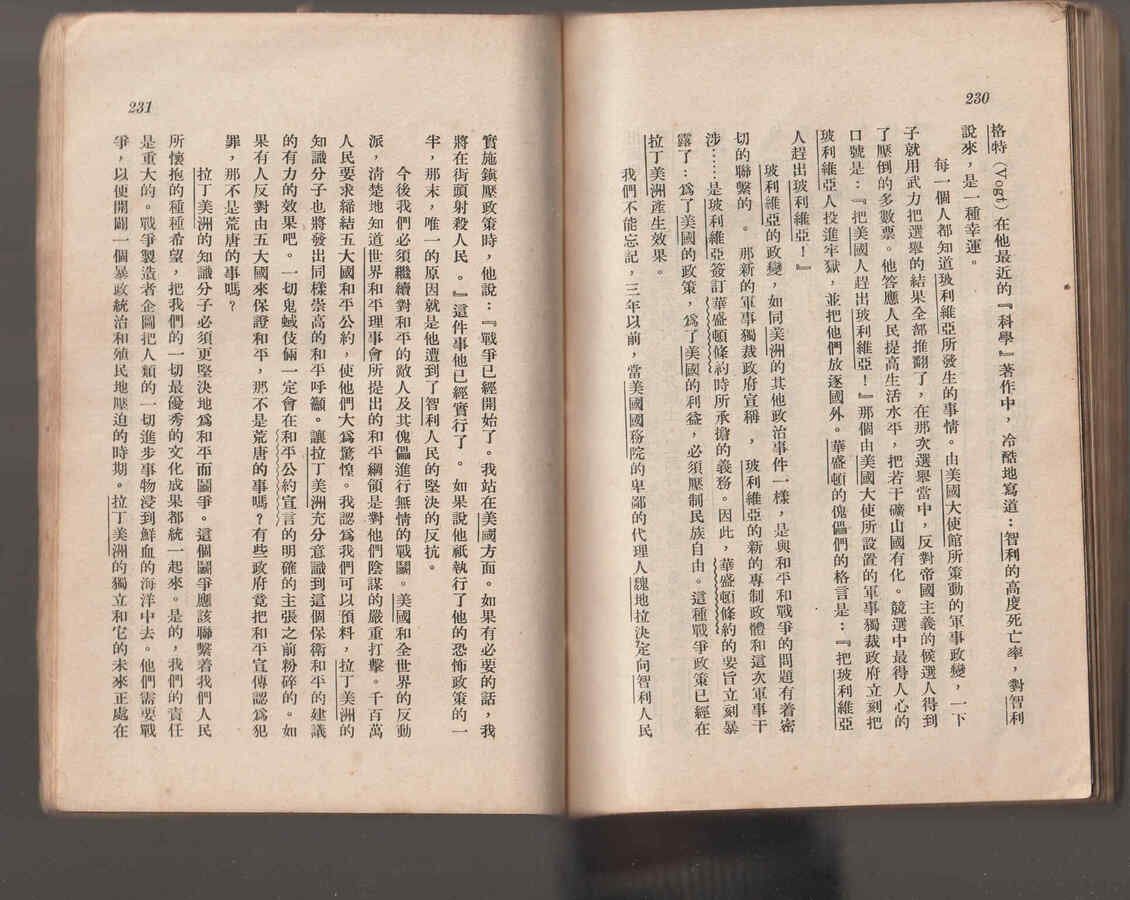 230
格特（Vogt）在他最近的『科學』著作中，冷酷地寫道：智利的高度死亡率，對智利
說來，是一種幸運。
每一個人都知道玻利維亞所發生的事情。由美國大使館所策動的軍事政變，一下
子就用武力把選舉的結果全部推翻了，在那次選舉當中，反對帝國主義的候選人得到
了壓倒的多數票。他答應人民提高生活水平，把若干礦山國有化。競選中最得人心的
口號是：『把美國人趕出玻利維亞！』那個由美國大使所設置的軍事獨裁政府立刻把
玻利維亞人投進牢獄，並把他們放逐國外。華盛頓的傀儡們的格言是：『把玻利維亞
人趕出玻利維亞！』
玻利維亞的政變，如同美洲的其他政治事件一樣，是與和平和戰爭的問題有着密
切的聯繫的。那新的軍事獨裁政府宣稱，玻利維亞的新的專制政體和這次軍事干
涉……是玻利維亞簽訂華盛頓條約時所承擔的義務。因此，華盛頓條約的要旨立刻暴
露了：爲了美國的政策，爲了美國的利益，必須壓制民族自由。這種戰爭政策已經在
拉丁美洲產生效果。
我們不能忘記，三年以前，當美國國務院的卑鄙的代理人魏地拉決定向智利人民
231
實施鎮壓政策時，他說：『戰爭已經開始了。我站在美國方面。如果有必要的話，我
將在街頭射殺人民。』這件事他已經實行了。如果說他祇執行了他的恐怖政策的一
半，那末，唯一的原因就是他遭到了智利人民的堅決的反抗。
今後我們必須繼續對和平的敵人及其傀儡進行無情的戰鬭。美國和全世界的反動
派，清楚地知道世界和平理事會所提出的和平綱領是對他們陰謀的嚴重打擊。千百萬
人民要求締結五大國和平公約，使他們大爲驚惶。我認爲我們可以預料，拉丁美洲的
知識分子也將發出同樣崇高的和平呼籲。讓拉丁美洲充分意識到這個保衛和平的建議
的有力的效果吧。一切鬼蜮伎倆一定會在和平公約宣言的明確的主張之前粉碎的。如
果有人反對由五大國來保證和平，那不是荒唐的事嗎？有些政府竟把和平宣傳認爲犯
罪，那不是荒唐的事嗎？
拉丁美洲的知識分子必須更堅決地爲和平而鬭爭。這個鬭爭應該聯繫着我們人民
所懷抱的種種希望，把我們的一切最優秀的文化成果都統一起來。是的，我們的責任
是重大的。戰爭製造者企圖把人類的一切進步事物浸到鮮血的海洋中去。他們需要戰
爭，以便開闢一個暴政統治和殖民地壓迫的時期。拉丁美洲的獨立和它的未來正處在